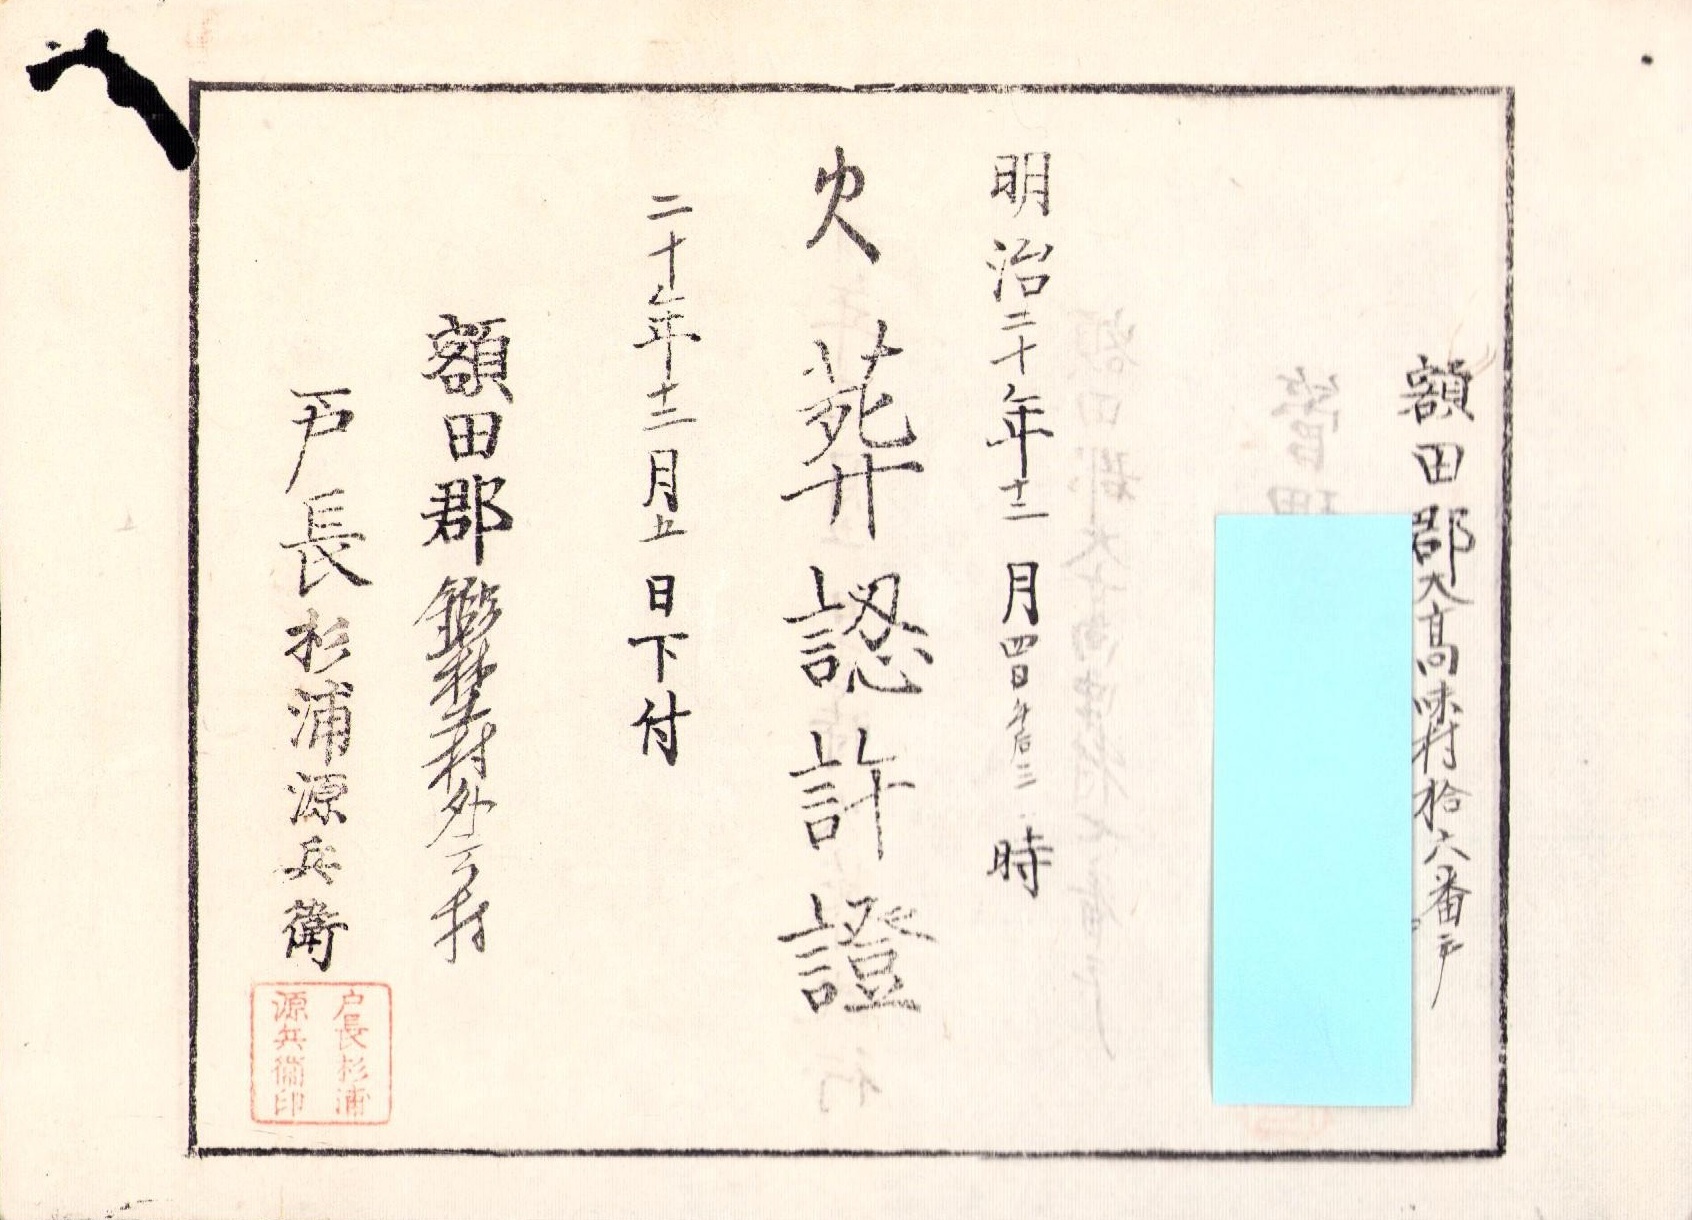 額田郡大高味村拾六番戸
明治二十年十二月四日午后三時
火葬認許證
二十年十二月五日下付
額田郡鍛埜村外三村
戸長杉浦源兵衛
戸長杉浦
源兵衛印